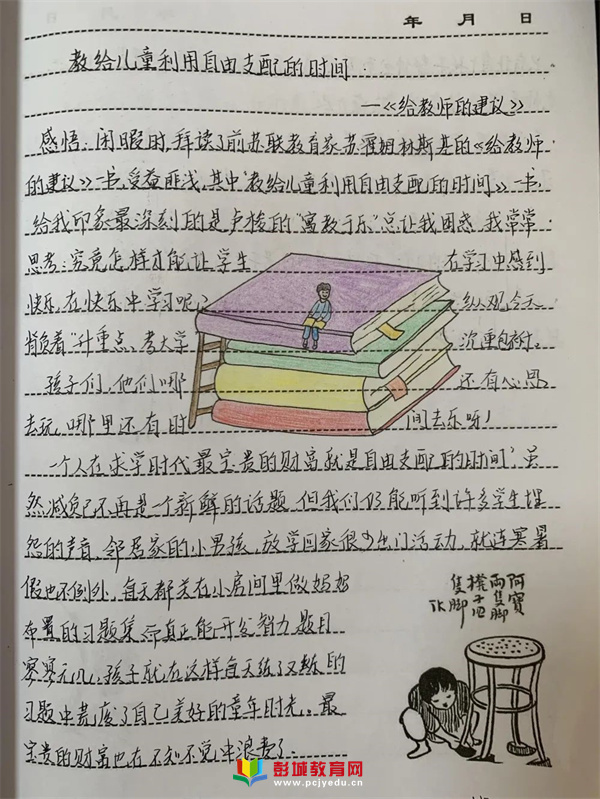 年 月 日
教给儿童利用自由支配的时间.
—《给教师的建议》
感悟:闲暇时,拜读了前苏联教育家苏霍姆林斯基的《给教师
的建议》一书,受益匪浅,其中“教给儿童利用自由支配的时间》一书,
给我印象最深刻的是卢梭的“寓教于乐”总让我困惑.我常常
思考:究竟怎样才能让学生 在学习中感到
快乐,在快乐中学习呢? 纵观今天
背负着“升重点、考大学 沉重包袱.
孩子们,他们哪 还有心思
去玩,哪里还有时 间去乐呀!
一个人在求学时代最宝贵的财富就是自由支配的时间,虽
然减负已不再是一个新鲜的话题.但我们仍能听到许多学生埋
怨的声音,邻居家的小男孩,放学回家很少出门活动,就连寒暑
假也不例外,每天都关在小房间里做妈妈
布置的习题集,而真正能开发智力题目
寥寥无几,孩子就在这样每天练了又练的
习题中荒废了自己美好的童年时光,最
宝贵的财富也在不知不觉中浪费了.
阿寶
兩隻脚
櫈子四
隻脚
TK
彭城教育网
www.pcjyedu.cn